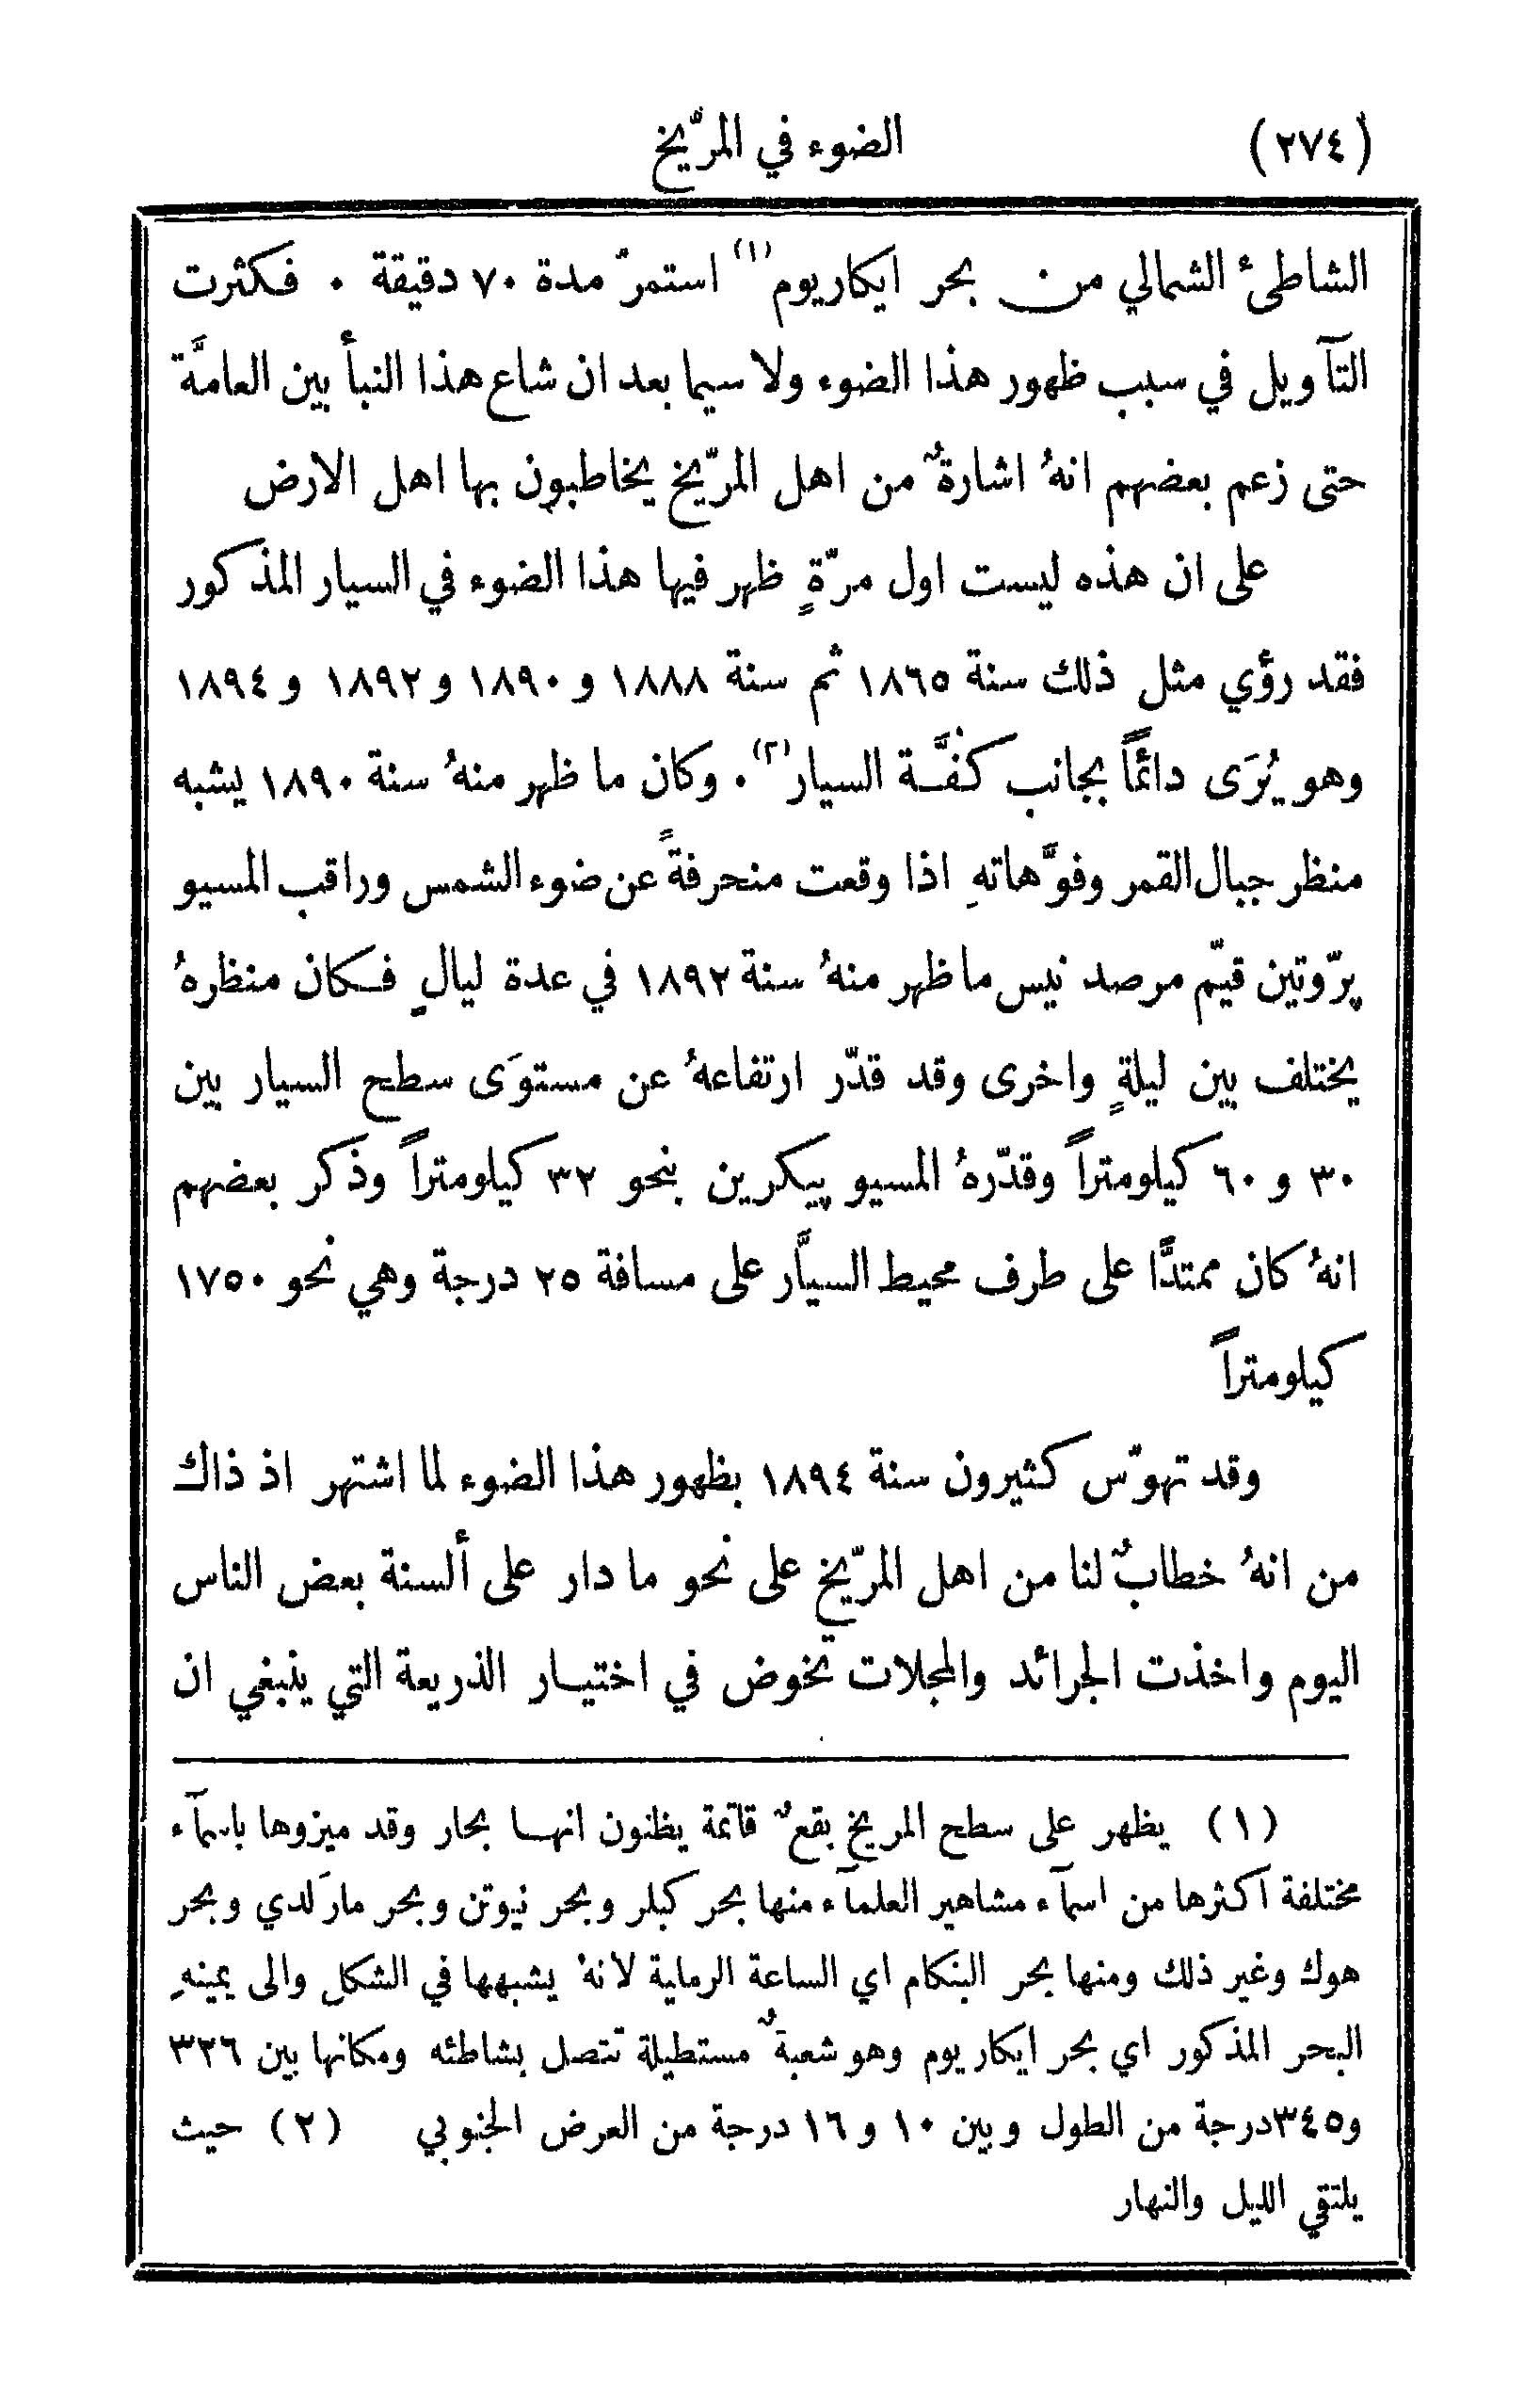 (٢٧٤) الضوء في المرّيخ
الشاطئ الشمالي من بحر ايكاريوم(١) استمرّ مدة ٧٠ دقيقة . فكثرت
التآويل في سبب ظهور هذا الضوء ولا سيما بعد ان شاع هذا النبأ بين العامَّة
حتى زعم بعضهم انهُ اشارةٌ من اهل المرّيخ يخاطبون بها اهل الارض
على ان هذه ليست اول مرّةٍ ظهر فيها هذا الضوء في السيار المذكور
فقد رؤي مثل ذلك سنة ١٨٦٥ ثم سنة ١٨٨٨ و١٨٩٠ و١٨٩٢ و١٨٩٤
وهو يُرَى دائماً بجانب كُفَّة السيار(٢). وكان ما ظهر منهُ سنة ١٨٩٠ يشبه
منظر جبال القمر وفوَّهاتهِ اذا وقعت منحرفةً عن ضوء الشمس وراقب المسيو
پرّوتين قيّم مرصد نيس ما ظهر منهُ سنة ١٨٩٢ في عدة ليالٍ فكان منظرهُ
يختلف بين ليلةٍ واخرى وقد قدّر ارتفاعهُ عن مستوَى سطح السيار بين
٣٠ و٦٠ كيلومتراً وقدّرهُ المسيو پيكرين بنحو ٣٢ كيلومتراً وذكر بعضهم
انهُ كان ممتدًّا على طرف محيط السيَّار على مسافة ٢٥ درجة وهي نحو ١٧٥٠
كيلومتراً
وقد تهوّس كثيرون سنة ١٨٩٤ بظهور هذا الضوء لما اشتهر اذ ذاك
من انهُ خطابٌ لنا من اهل المرّيخ على نحو ما دار على ألسنة بعض الناس
اليوم واخذت الجرائد والمجلات تخوض في اختيار الذريعة التي ينبغي ان
(١) يظهر على سطح المريخ بقعٌ قاتمة يظنون انها بحار وقد ميزوها باسمآء
مختلفة اكثرها من اسمآء مشاهير العلمآء منها بحر كبلر وبحر نيوتن وبحر مارَلدي وبحر
هوك وغير ذلك ومنها بحر البنكام اي الساعة الرملية لانهُ يشبهها في الشكل والى يمينهِ
البحر المذكور اي بحر ايكاريوم وهو شعبةٌ مستطيلة تتصل بشاطئه ومكانها بين ٣٢٦
و٣٤٥ درجة من الطول وبين ١٠ و١٦ درجة من العرض الجنوبي (٢) حيث
يلتقي الليل والنهار